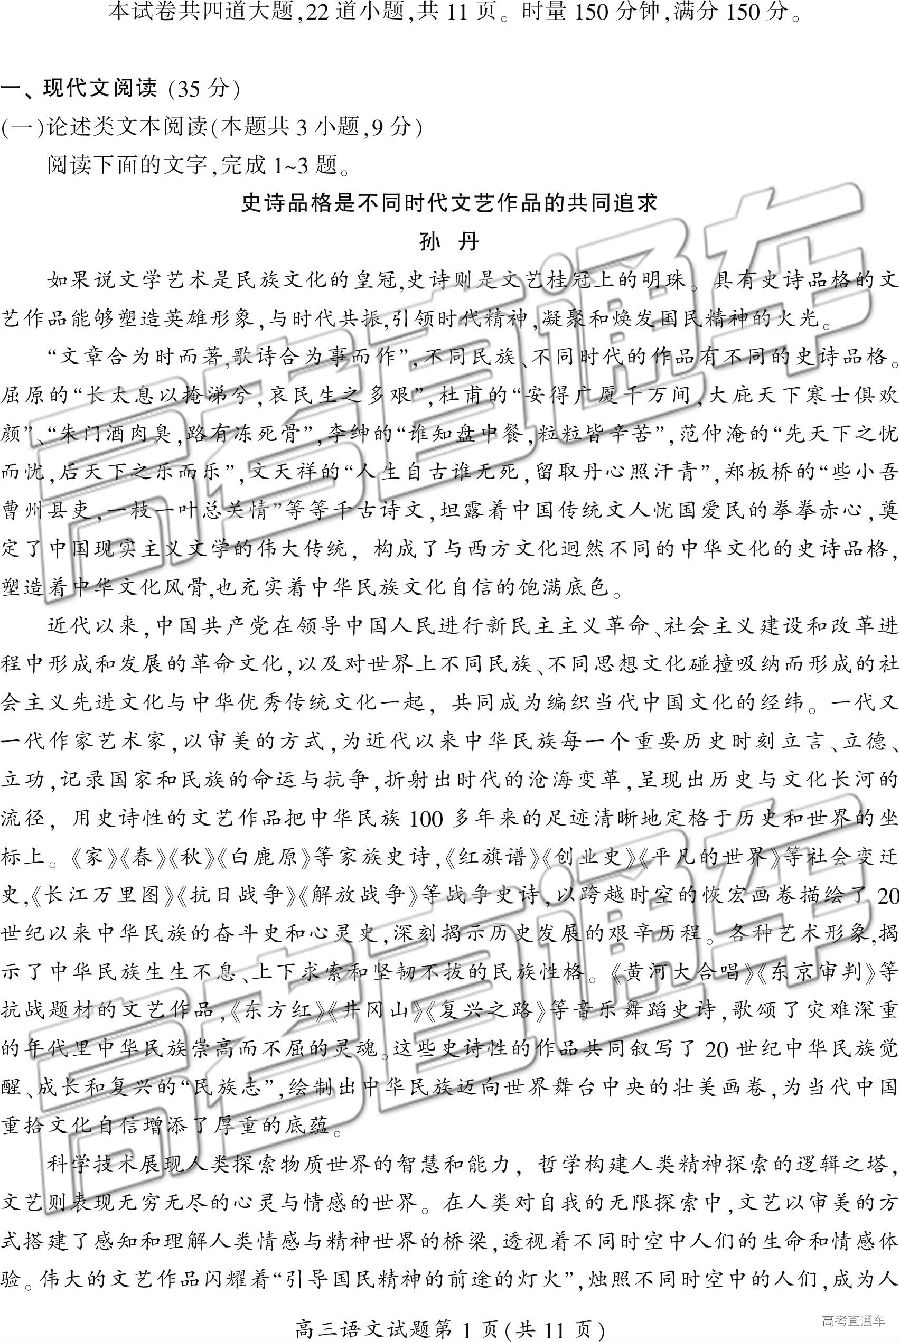 本试卷共四道大题,22道小题,共11页。时量150分钟,满分150分。
一、现代文阅读(35分)
(一)论述类文本阅读(本题共3小题,9分)
阅读下面的文字,完成1~3题。
史诗品格是不同时代文艺作品的共同追求
孙 丹
如果说文学艺术是民族文化的皇冠,史诗则是文艺桂冠上的明珠。具有史诗品格的文
艺作品能够塑造英雄形象,与时代共振,引领时代精神,凝聚和焕发国民精神的火光。
“文章合为时而著,歌诗合为事而作”,不同民族、不同时代的作品有不同的史诗品格。
屈原的“长太息以掩涕兮,哀民生之多艰”,杜甫的“安得广厦千万间,大庇天下寒士俱欢
颜”、“朱门酒肉臭,路有冻死骨”,李绅的“谁知盘中餐,粒粒皆辛苦”,范仲淹的“先天下之忧
而忧,后天下之乐而乐”,文天祥的“人生自古谁无死,留取丹心照汗青”,郑板桥的“些小吾
曹州县吏,一枝一叶总关情”等等千古诗文,坦露着中国传统文人忧国爱民的拳拳赤心,奠
定了中国现实主义文学的伟大传统，构成了与西方文化迥然不同的中华文化的史诗品格,
塑造着中华文化风骨,也充实着中华民族文化自信的饱满底色。
近代以来,中国共产党在领导中国人民进行新民主主义革命、社会主义建设和改革进
程中形成和发展的革命文化,以及对世界上不同民族、不同思想文化碰撞吸纳而形成的社
会主义先进文化与中华优秀传统文化一起，共同成为编织当代中国文化的经纬。一代又
一代作家艺术家,以审美的方式,为近代以来中华民族每一个重要历史时刻立言、立德、
立功,记录国家和民族的命运与抗争,折射出时代的沧海变革,呈现出历史与文化长河的
流径，用史诗性的文艺作品把中华民族100多年来的足迹清晰地定格于历史和世界的坐
标上。《家》《春》《秋》《白鹿原》等家族史诗,《红旗谱》《创业史》《平凡的世界》等社会变迁
史,《长江万里图》《抗日战争》《解放战争》等战争史诗,以跨越时空的恢宏画卷描绘了20
世纪以来中华民族的奋斗史和心灵史,深刻揭示历史发展的艰辛历程。各种艺术形象,揭
示了中华民族生生不息、上下求索和坚韧不拔的民族性格。《黄河大合唱》《东京审判》等
抗战题材的文艺作品,《东方红》《井冈山》《复兴之路》等音乐舞蹈史诗,歌颂了灾难深重
的年代里中华民族崇高而不屈的灵魂。这些史诗性的作品共同叙写了20世纪中华民族觉
醒、成长和复兴的“民族志”,绘制出中华民族迈向世界舞台中央的壮美画卷,为当代中国
重拾文化自信增添了厚重的底蕴。
科学技术展现人类探索物质世界的智慧和能力，哲学构建人类精神探索的逻辑之塔,
文艺则表现无穷无尽的心灵与情感的世界。在人类对自我的无限探索中,文艺以审美的方
式搭建了感知和理解人类情感与精神世界的桥梁,透视着不同时空中人们的生命和情感体
验。伟大的文艺作品闪耀着“引导国民精神的前途的灯火”,烛照不同时空中的人们,成为人
高三语文试题第1页(共11页)
高考直通车
高考直通车
高考直通车